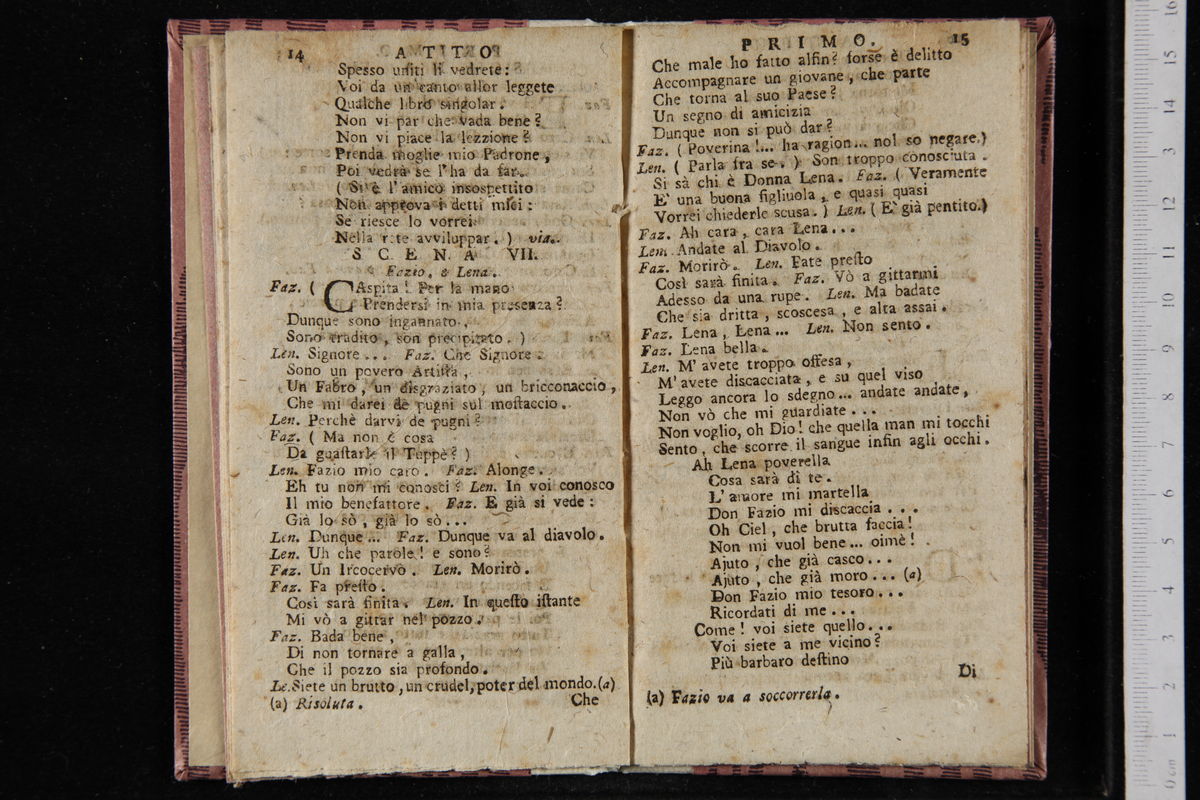 14 ATTO
Spesso uniti li vedrete:
Voi da un canto allor leggete
Qualche libro singolar.
Non vi par che vada bene?
Non vi piace la lezzione?
Prenda moglie mio Padrone,
Poi vedrà se l'ha da far.
(Si è l'amico insospettito
Non approva i detti miei:
Se riesce lo vorrei
Nella rete avviluppar.) via.
SCENA VII.
Fazio, e Lena.
Faz. (CAspita! Per la mano
Prendersi in mia presenza?
Dunque sono ingannato,
Sono tradito, son precipitato.)
Len. Signore... Faz. Che Signore.
Sono un povero Artista,
Un Fabro, un disgraziato, un bricconaccio,
Che mi darei de pugni sul mostaccio.
Len. Perchè darvi de pugni?
Faz. (Ma non è cosa
Da guastarle il Tuppè?)
Len. Fazio mio caro. Faz. Alonge.
Eh tu non mi conosci? Len. In voi conosco
Il mio benefattore. Faz. E già si vede:
Già lo sò, già lo sò...
Len. Dunque... Faz. Dunque va al diavolo.
Len. Uh che parole! e sono?
Faz. Un Ircocervo. Len. Morirò.
Faz. Fa presto.
Così sarà finita. Len. In questo istante
Mi vò a gittar nel pozzo.
Faz. Bada bene,
Di non tornare a galla,
Che il pozzo sia profondo.
Le. Siete un brutto, un crudel, poter del mondo. (a)
(a) Risoluta. Che
PRIMO. 15
Che male ho fatto alfin? forse è delitto
Accompagnare un giovane, che parte
Che torna al suo Paese?
Un segno di amicizia
Dunque non si può dar?
Faz. (Poverina!... ha ragion... nol so negare.)
Len. (Parla fra se.) Son troppo conosciuta.
Si sà chi è Donna Lena. Faz. (Veramente
E' una buona figliuola, e quasi quasi
Vorrei chiederle scusa.) Len. (E' già pentito.)
Faz. Ah cara, cara Lena...
Len. Andate al Diavolo.
Faz. Morirò. Len. Fate presto
Così sarà finita. Faz. Vò a gittarmi
Adesso da una rupe. Len. Ma badate
Che sia dritta, scoscesa, e alta assai.
Faz. Lena, Lena... Len. Non sento.
Faz. Lena bella.
Len. M' avete troppo offesa,
M' avete discacciata, e su quel viso
Leggo ancora lo sdegno... andate andate,
Non vò che mi guardiate...
Non voglio, oh Dio! che quella man mi tocchi
Sento, che scorre il sangue infin agli occhi.
Ah Lena poverella
Cosa sarà di te.
L' amore mi martella
Don Fazio mi discaccia...
Oh Ciel, che brutta faccia!
Non mi vuol bene... oimè!
Ajuto, che già casco...
Ajuto, che già moro... (a)
Don Fazio mio tesoro...
Ricordati di me...
Come! voi siete quello...
Voi siete a me vicino?
Più barbaro destino
Di
(a) Fazio va a soccorrerla.